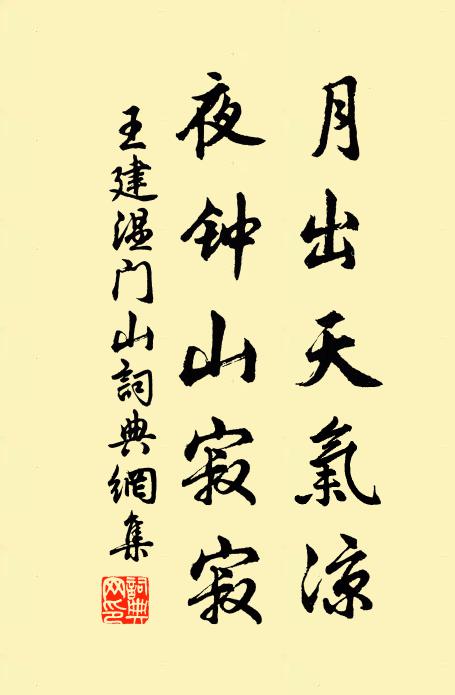 月出天氣凉
夜钟山寂寂
王建温门山詞典網集
詞典网印